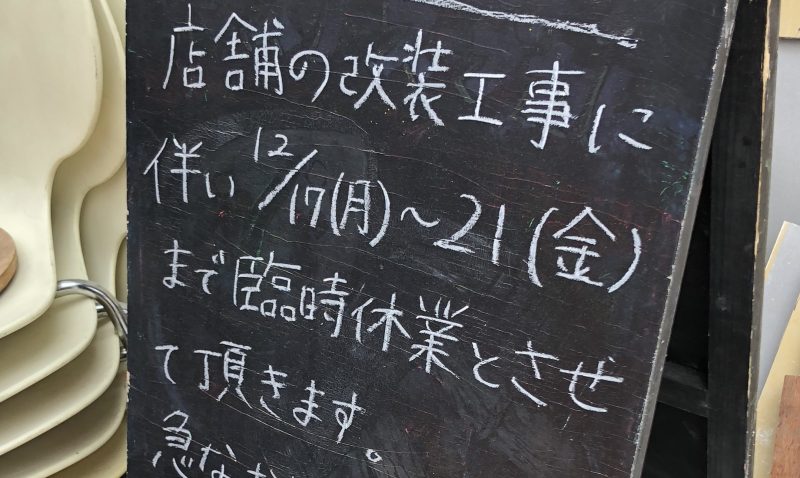 店舗の改装工事に
伴い12/17(月)～21(金)
まで臨時休業とさせ
て頂きます。
急な